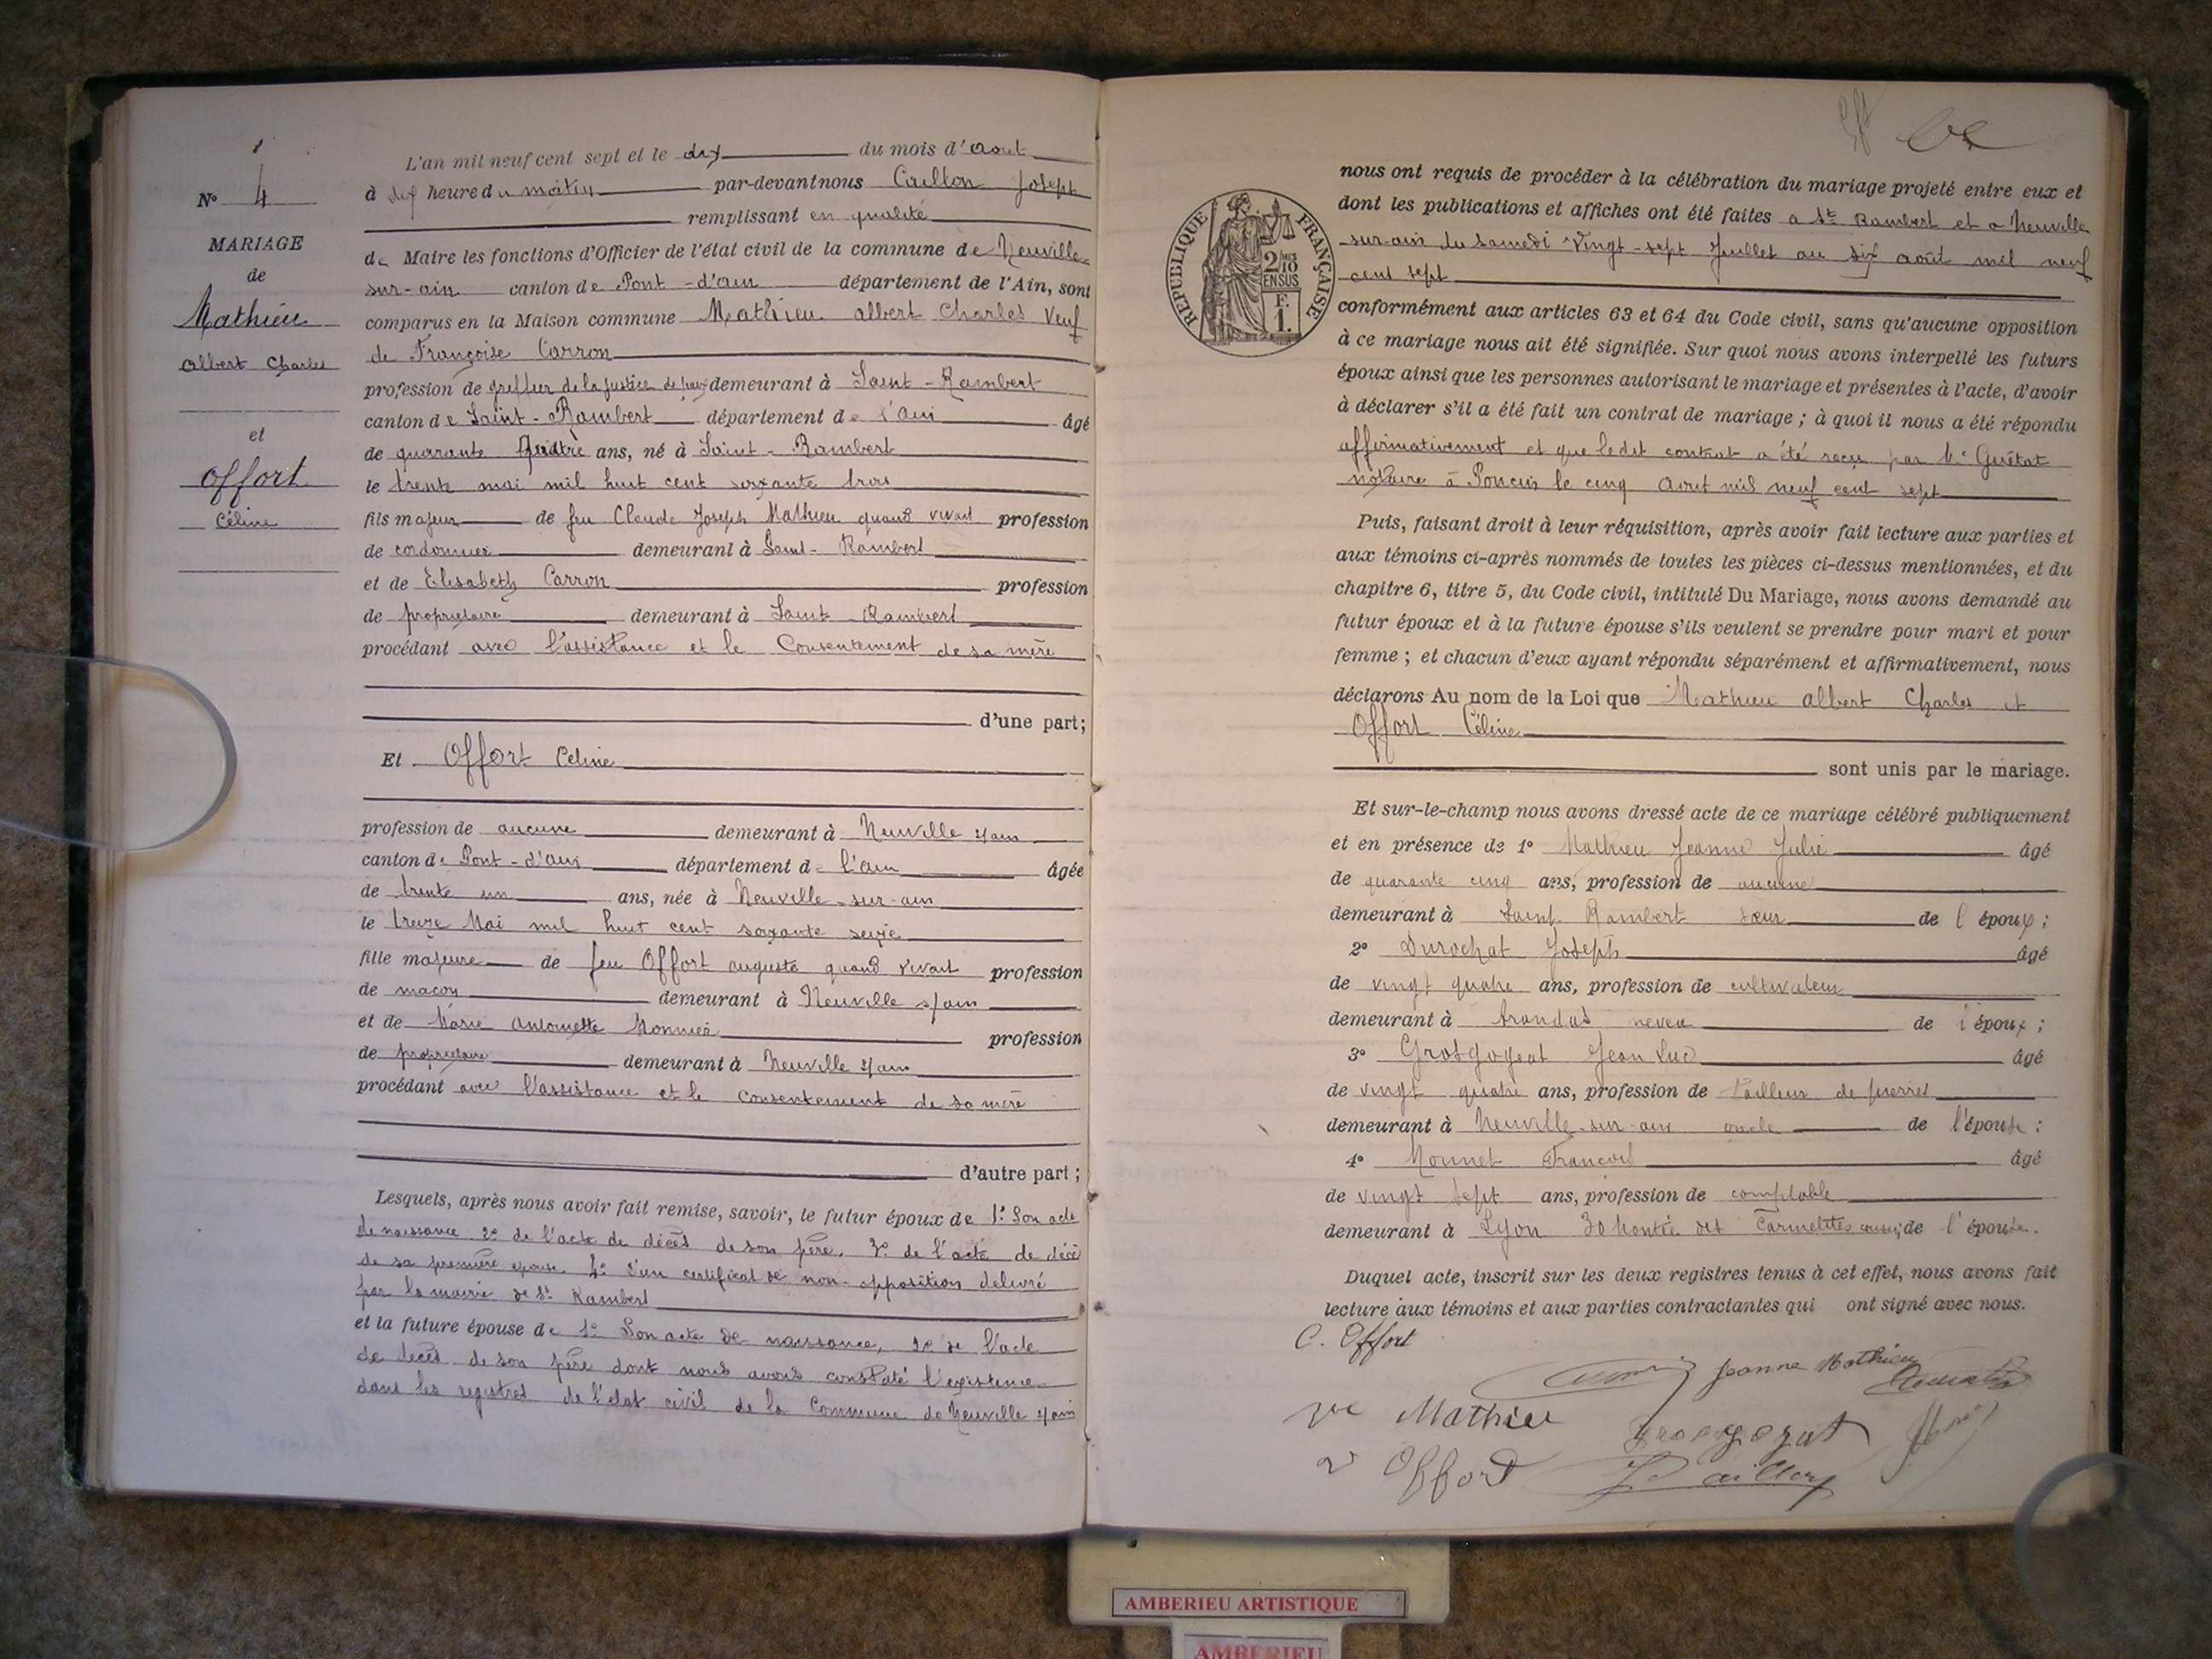 N° 4
MARIAGE
de
Mathieu
Albert Charles
et
Offort
Céline
L'an mil neuf cent sept et le dix du mois d'aout
à dix heure du matin par-devant nous Caillon Joseph
remplissant en qualité
de Maire les fonctions d'Officier de l'état civil de la commune de Neuville-
sur-ain canton de Pont-d'ain département de l'Ain, sont
comparus en la Maison commune Mathieu albert Charles Veuf
de Françoise Carron
profession de greffier de la justice de paix demeurant à Saint-Rambert
canton de Saint-Rambert département de l'ain âgé
de quarante quatre ans, né à Saint-Rambert
le trente mai mil huit cent soixante trois
fils majeur de feu Claude Joseph Mathieu quand vivait profession
de cordonnier demeurant à Saint-Rambert
et de Elisabeth Carron profession
de propriétaire demeurant à Saint-Rambert
procédant avec l'assistance et le Consentement de sa mère
d'une part;
Et Offort Celine
profession de aucune demeurant à Neuville s/ain
canton de Pont-d'ain département de l'ain âgée
de trente un ans, née à Neuville-sur-ain
le treize Mai mil huit cent soixante seize
fille majeure de feu Offort auguste quand vivait profession
de maçon demeurant à Neuville s/ain
et de Marie antoinette Monnier profession
de propriétaire demeurant à Neuville s/ain
procédant avec l'assistance et le consentement de sa mère
d'autre part;
Lesquels, après nous avoir fait remise, savoir, le futur époux de 1° Son acte
de naissance 2° de l'acte de décès de son père, 3° de l'acte de décè
de sa première epouse 4° d'un certificat de non-opposition delivré
par la mairie de St Rambert
et la future épouse de 1° Son acte de naissance, 2° de l'acte
de decès de son père dont nous avons constaté l'existence
dans les registres de l'état civil de la Commune de Neuville s/ain
RÉPUBLIQUE FRANÇAISE
2/10
EN SUS
F.
1.
nous ont requis de procéder à la célébration du mariage projeté entre eux et
dont les publications et affiches ont été faites a St Rambert et a Neuville
-sur-ain du samedi Vingt-sept Juillet au six août mil neuf
cent sept
conformément aux articles 63 et 64 du Code civil, sans qu'aucune opposition
à ce mariage nous ait été signifiée. Sur quoi nous avons interpellé les futurs
époux ainsi que les personnes autorisant le mariage et présentes à l'acte, d'avoir
à déclarer s'il a été fait un contrat de mariage; à quoi il nous a été répondu
affirmativement et que ledit contrat a été reçu par Me Guétat
notaire à Poncin le cinq Aout mil neuf cent sept
Puis, faisant droit à leur réquisition, après avoir fait lecture aux parties et
aux témoins ci-après nommés de toutes les pièces ci-dessus mentionnées, et du
chapitre 6, titre 5, du Code civil, intitulé Du Mariage, nous avons demandé au
futur époux et à la future épouse s'ils veulent se prendre pour mari et pour
femme; et chacun d'eux ayant répondu séparément et affirmativement, nous
déclarons Au nom de la Loi que Mathieu albert Charles et
Offort Céline
sont unis par le mariage.
Et sur-le-champ nous avons dressé acte de ce mariage célébré publiquement
et en présence de 1° Mathieu Jeanne Julie âgé
de quarante cinq ans, profession de aucune
demeurant à Saint Rambert sœur de l'époux;
2° Durochat Joseph âgé
de vingt quatre ans, profession de cultivateur
demeurant à Arandas neveu de l'époux;
3° Grosgogeat Jean Luc âgé
de vingt quatre ans, profession de tailleur de pierres
demeurant à Neuville-sur-ain oncle de l'épouse;
4° Monnet Francois âgé
de vingt sept ans, profession de comptable
demeurant à Lyon 30 Montée des Carmelites cousin de l'épouse.
Duquel acte, inscrit sur les deux registres tenus à cet effet, nous avons fait
lecture aux témoins et aux parties contractantes qui ont signé avec nous.
C. Offort
Jeanne Mathieu
ve Mathieu
Grosgogeat
ve Offort
J Caillon
AMBERIEU ARTISTIQUE
AMBERIEU